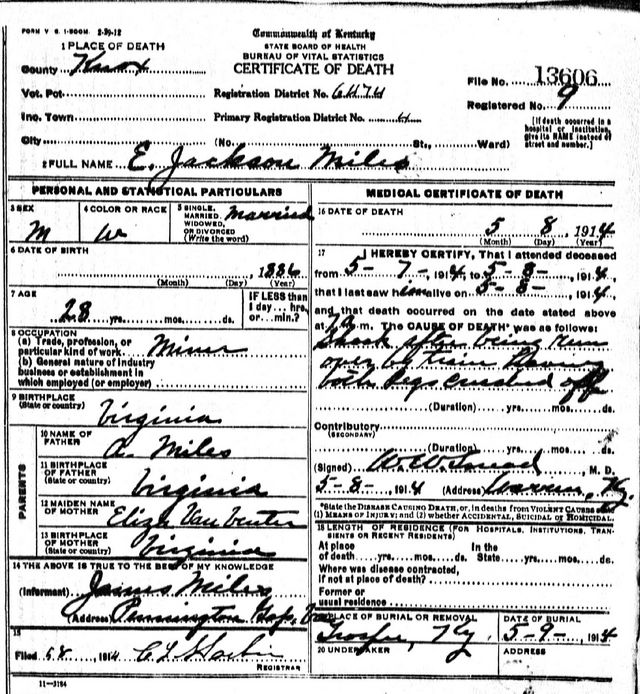 FORM V. S. 1-500M. 2-29-12
Commonwealth of Kentucky
STATE BOARD OF HEALTH
BUREAU OF VITAL STATISTICS
CERTIFICATE OF DEATH
1 PLACE OF DEATH
County Knox
Vot. Pct
Registration District No. 6474
File No. 13606
Inc. Town
Primary Registration District No. 4
Registered No. 9
City (No. St., Ward)
[If death occurred in a
hospital or institution,
give its NAME instead of
street and number.]
2 FULL NAME E. Jackson Miles
PERSONAL AND STATISTICAL PARTICULARS
3 SEX
M
4 COLOR OR RACE
W
5 SINGLE,
MARRIED,
WIDOWED,
OR DIVORCED
(Write the word)
Married
6 DATE OF BIRTH
, 1886
(Month) (Day) (Year)
7 AGE
28 yrs. mos. ds.
IF LESS than
1 day... hrs.
or... min.?
8 OCCUPATION
(a) Trade, profession, or
particular kind of work Miner
(b) General nature of industry
business or establishment in
which employed (or employer)
9 BIRTHPLACE
(State or country) Virginia
PARENTS
10 NAME OF
FATHER A. Miles
11 BIRTHPLACE
OF FATHER
(State or country) Virginia
12 MAIDEN NAME
OF MOTHER Eliza Van Venter
13 BIRTHPLACE
OF MOTHER
(State or country) Virginia
14 THE ABOVE IS TRUE TO THE BEST OF MY KNOWLEDGE
(Informant) James Miles
(Address) Pennington Gap, Va
15
Filed 5-8, 1914
REGISTRAR
11-3184
MEDICAL CERTIFICATE OF DEATH
16 DATE OF DEATH
5 8, 1914
(Month) (Day) (Year)
17 I HEREBY CERTIFY, That I attended deceased
from 5-7-, 1914, to 5-8-, 1914,
that I last saw him alive on 5-8-, 1914,
and that death occurred on the date stated above
at m. The CAUSE OF DEATH* was as follows:
Shock after being run
over by train
both legs crushed off
(Duration) yrs. mos. ds.
Contributory
(SECONDARY)
(Duration) yrs. mos. ds.
(Signed) W.W. , M. D.
5-8-, 1914 (Address) Warren, Ky.
*State the DISEASE CAUSING DEATH, or, in deaths from VIOLENT CAUSES state
(1) MEANS OF INJURY; and (2) whether ACCIDENTAL, SUICIDAL or HOMICIDAL.
18 LENGTH OF RESIDENCE (FOR HOSPITALS, INSTITUTIONS, TRAN-
SIENTS OR RECENT RESIDENTS)
At place
of death yrs. mos. ds.
In the
State yrs. mos. ds.
Where was disease contracted,
If not at place of death?
Former or
usual residence
19 PLACE OF BURIAL OR REMOVAL
Trosper, Ky
DATE OF BURIAL
5-9-, 1914
20 UNDERTAKER
ADDRESS